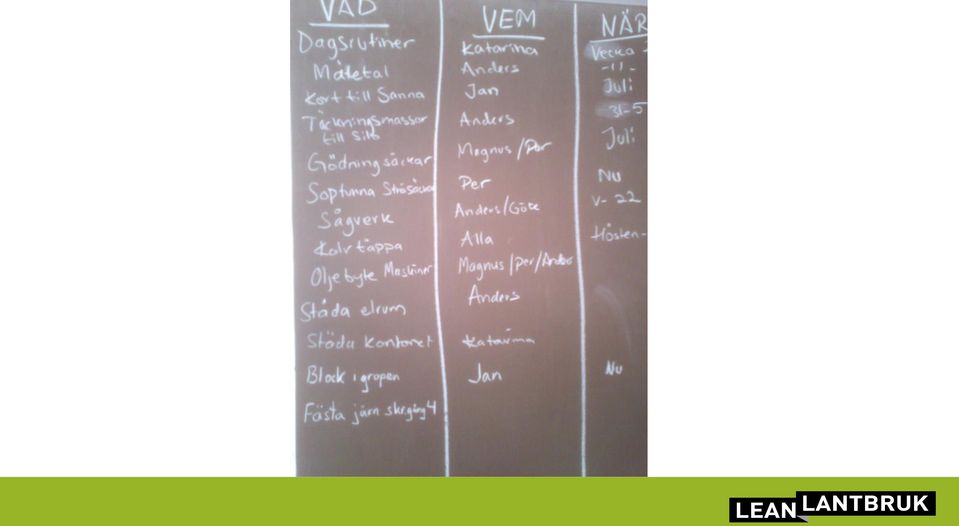 VAD VEM NÄR
Dagsrutiner Katarina Vecka
Måletal Anders -11-
Kort till Sanna Jan Juli
Täckningsmassor Anders -31-5
till Silo Juli
Gödningsäckar Magnus/Per
Soptunna Strösäckar Per Nu
Sågverk Anders/Göte V-22
Kalvtäppa Alla Hösten-
Oljebyte Maskiner Magnus/Per/Anders
Städa elrum Anders
Städa Kontoret Katarina
Block i gropen Jan Nu
Fästa järn skrgång 4
LEAN LANTBRUK